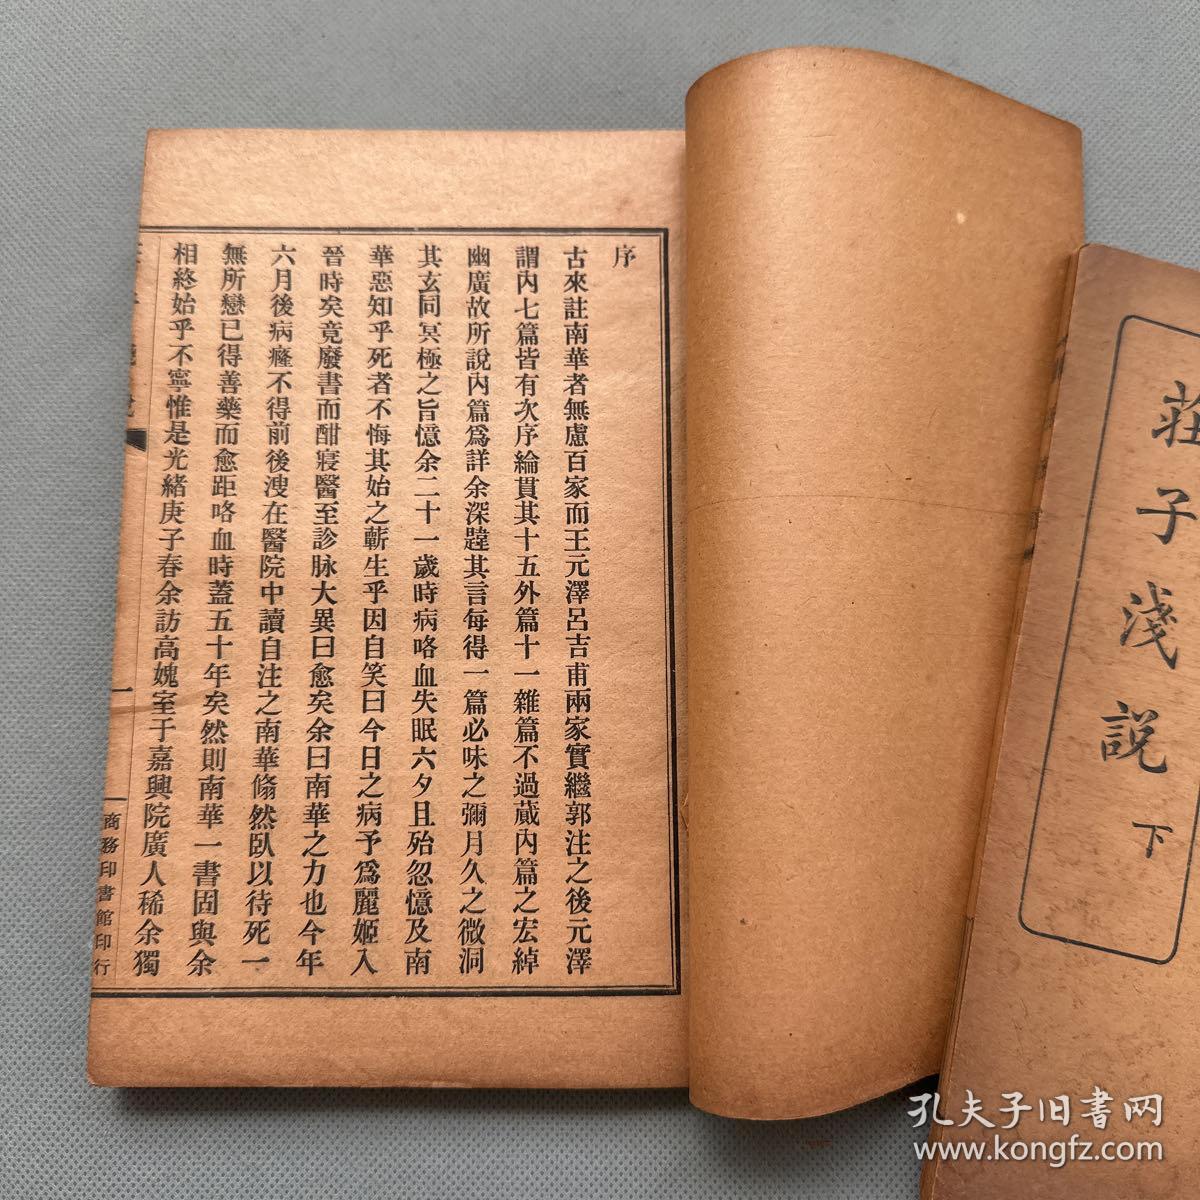 序
古來註南華者無慮百家而王元澤呂吉甫兩家實繼郭注之後元澤
謂內七篇皆有次序綸貫其十五外篇十一雜篇不過藏內篇之宏綽
幽廣故所說內篇爲詳余深韙其言每得一篇必味之彌月久之微洞
其玄同冥極之旨憶余二十一歲時病咯血失眠六夕且殆忽憶及南
華惡知乎死者不悔其始之蘄生乎因自笑曰今日之病予爲麗姬入
晉時矣竟廢書而酣寢醫至診脉大異曰愈矣余曰南華之力也今年
六月後病癃不得前後溲在醫院中讀自注之南華翛然臥以待死一
無所戀已得善藥而愈距咯血時蓋五十年矣然則南華一書固與余
相終始乎不寧惟是光緒庚子春余訪高媿室于嘉興院廣人稀余獨
一
商務印書館印行
莊子淺說
下
孔夫子旧書网
www.kongfz.com